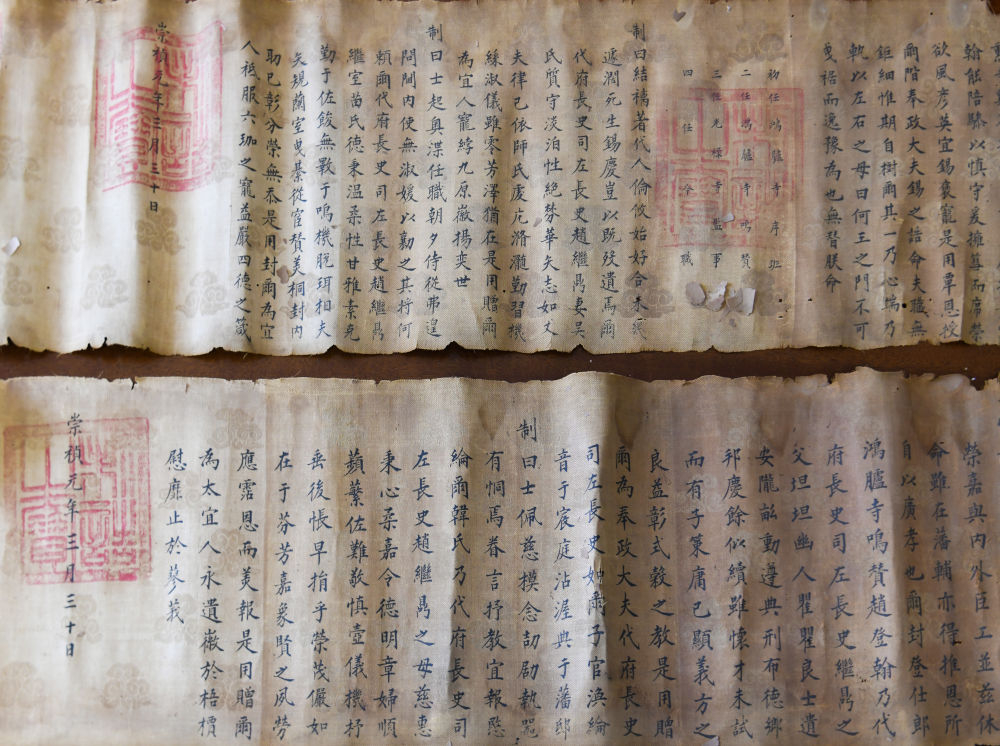 翰餙陪驂以慎守爰擁篲而席榮
欲風彦英宜錫褒寵是用覃恩授
爾階奉政大夫錫之誥命夫職無
鉅細惟期自樹爾其一乃心端乃
軌以左右之毋曰何王之門不可
曳裾而逸豫為也無替朕命
初任鴻臚寺序班
二任鴻臚寺鳴贊
三任光祿寺監事
四任今職
制曰結褵著代人倫攸始好合未幾
遽濶死生錫慶豈以既歿遺焉爾
代府長史司左長史趙繼勗妻吴
氏質守淡泊性絶芬華矢志如丈
夫律己依師氏虔庀滫瀡勤習機
絲淑儀雖零芳澤猶在是用贈爾
為宜人寵綍九原徽揚奕世
制曰士起奥渫任職朝夕侍從弗遑
問閫内使無淑媛以勷之其將何
頼爾代府長史司左長史趙繼勗
繼室苗氏德秉温柔性甘雅素克
勤于佐餕無斁于鳴機脱珥相夫
矢規蘭室曳綦從宦賛美桐封内
助已彰分榮無忝是用封爾為宜
人祗服六珈之寵益嚴四德之箴
崇禎元年三月三十日
榮嘉與内外臣工並茲休
命雖在藩輔亦得推恩所
自以廣孝也爾封登仕郎
鴻臚寺鳴贊趙登翰乃代
府長史司左長史繼勗之
父坦坦幽人瞿瞿良士遺
安隴畝動遵典刑布德鄉
邦慶餘似續雖懷才未試
而有子策庸已顯義方之
良益彰式穀之教是用贈
爾為奉政大夫代府長史
司左長史如爾子官渙綸
音于宸庭沾渥典于藩邸
制曰士佩慈模念劼劬執器
有恫焉眷言抒教宜報愍
綸爾韓氏乃代府長史司
左長史趙繼勗之母慈惠
秉心柔嘉令德明章婦順
蘋蘩佐難敬慎壼儀機杼
垂後悵早捐乎榮茂儼如
在于芬芳嘉象賢之夙勞
應霑恩而美報是用贈爾
為太宜人永遺徽於梧檟
慰靡止於蓼莪
崇禎元年三月三十日